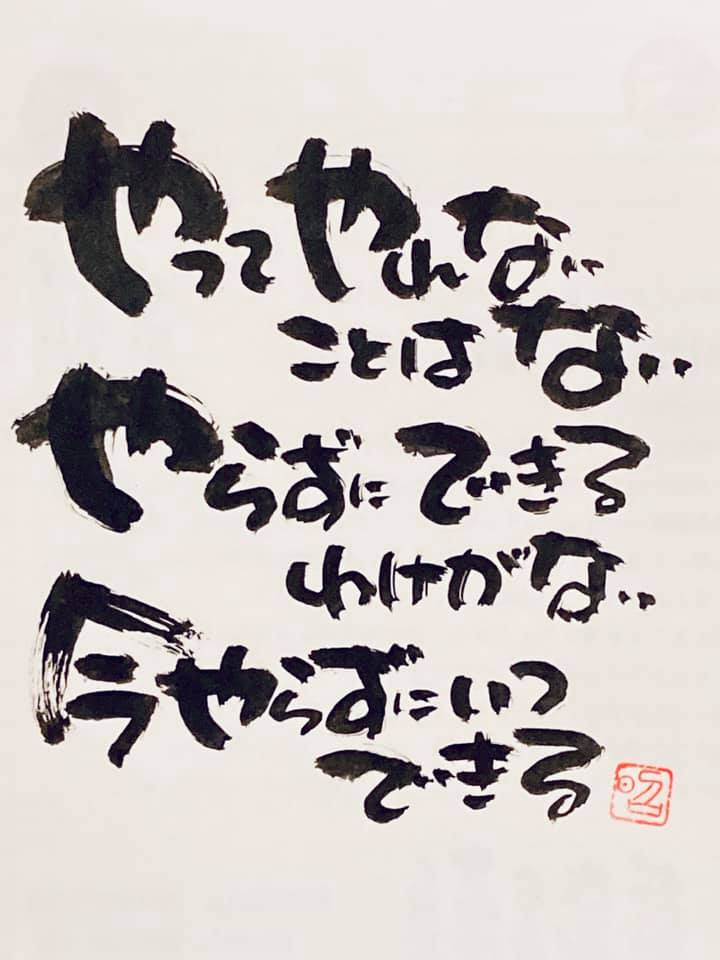 やってやれない
ことはない
やらずにできる
わけがない
今やらずにいつ
できる